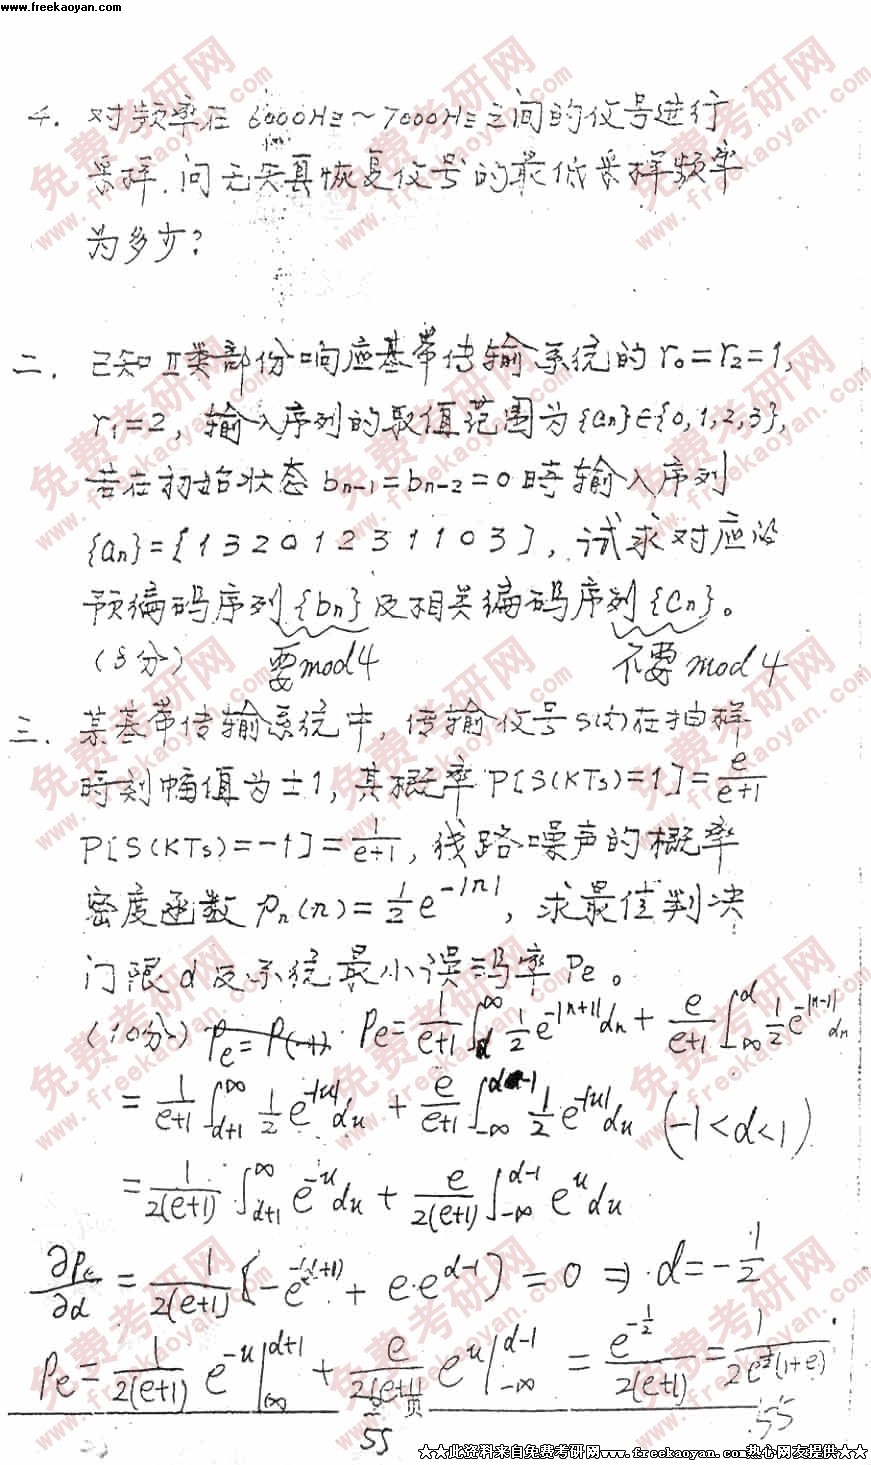 www.freekaoyan.com
4. 对频率在 6000Hz～7000Hz之间的仪号进行
采样，问无失真恢复仪号的最低采样频率
为多少？
二. 已知Ⅱ类部份响应基带传输系统的 r₀=r₂=1,
r₁=2, 输入序列的取值范围为{an}∈{0,1,2,3},
若在初始状态 bn-1=bn-2=0 時输入序列
{an}={1 3 2 0 1 2 3 1 1 0 3}, 试求对应的
预编码序列{bn}及相关编码序列{Cn}。
(8分) 要mod4 不要 mod 4
三. 某基带传输系统中, 传输仪号S(t)在抽样
時刻幅值为±1, 其概率 P[S(KTs)=1]=e/(e+1)
P[S(KTs)=-1]=1/(e+1), 线路噪声的概率
密度函数 Pn(n)=1/2 e^{-|n|}, 求最佳判决
门限 d 及系统最小误码率 Pe。
(10分) Pe=P(-1) Pe=1/(e+1)∫_d^∞ 1/2 e^{-|n+1|}dn + e/(e+1)∫_{-∞}^d 1/2 e^{-|n-1|}dn
=1/(e+1)∫_{d+1}^{∞} 1/2 e^{-|u|}du + e/(e+1)∫_{-∞}^{d-1} 1/2 e^{-|u|}du (-1<d<1)
=1/(2(e+1))∫_{d+1}^{∞} e^{-u}du + e/(2(e+1))∫_{-∞}^{d-1} e^{u}du
∂Pe/∂d=1/(2(e+1)){-e^{-(d+1)}+e·e^{d-1}}=0 ⇒ d=-1/2
Pe=1/(2(e+1)) e^{-u}|_{∞}^{d+1} + e/(2(e+1)) e^{u}|_{-∞}^{d-1} = e^{-1/2}/(2(e+1)) = 1/(2e^{1/2}(1+e))
页
55
55
★★此资料来自免费考研网www.freekaoyan.com热心网友提供★★